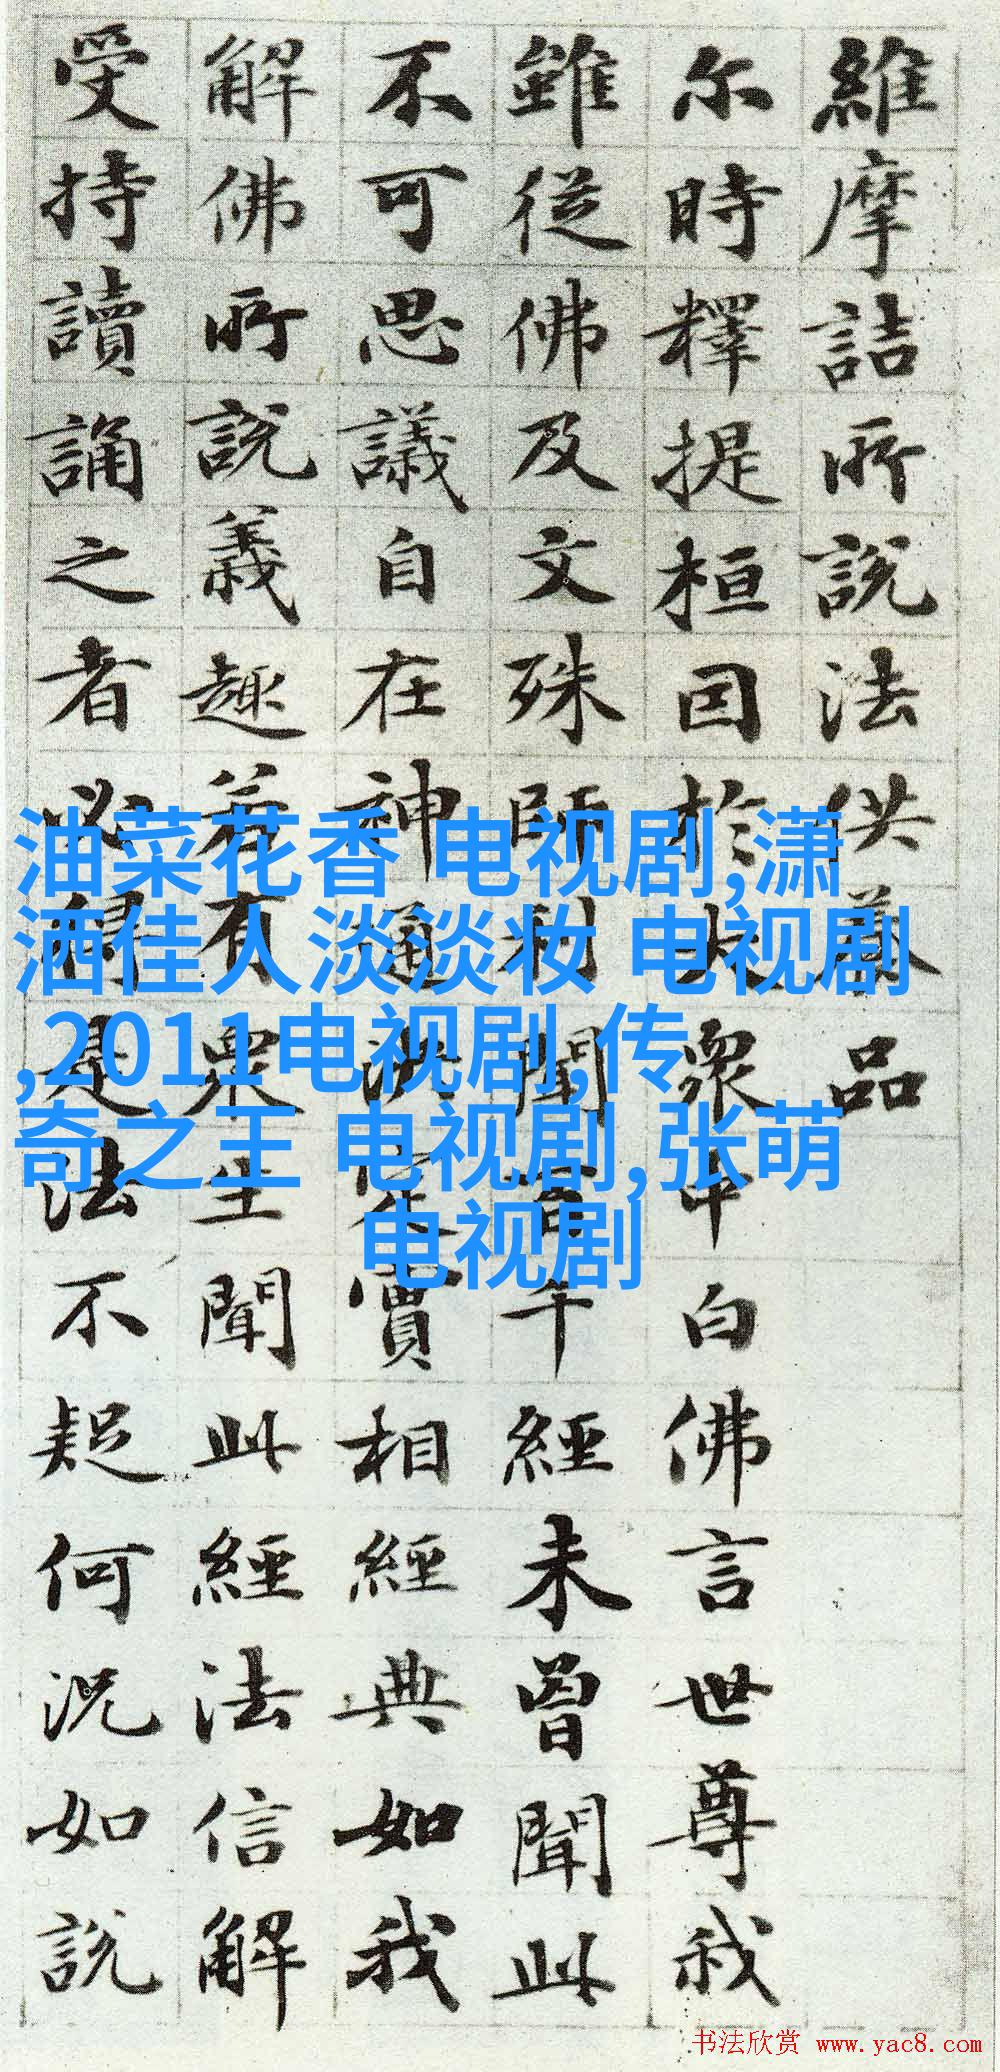 維摩詰所說法供養品
尔時釋提桓因於大衆中白佛言世尊我
雖從佛及文殊師利聞百千經未曾聞此
不可思議自在神通決定實相經典如我
解佛所說義趣若有衆生聞此經法信解
受持讀誦之者必得是法不疑何況如說
油菜花香 电视剧,潇
洒佳人淡淡妆 电视剧
,2011电视剧,传
奇之王 电视剧,张萌
电视剧
书法欣赏 www.yac8.com